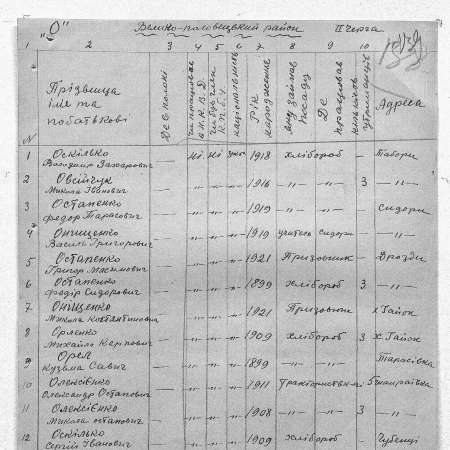 "О" Велико-половецький район ІІ Черга
1 2 3 4 5 6 7. 8 9 10
№ Прізвища ім'я та побатькові Де в полокі чи працював в Н.К.В.Д. чи був чл. К.П.б.У. національність Рік народження яку займав посаду Де працював кількість утриманців Адреса
1 Оскілько Володимир Захарович — ні ні укр 1918 хлібороб — — Табори
2 Овсійчук Микола Іванович — -"- -"- -"- 1916 -"- -"- 3 -"-
3 Остапенко Федор Тарасович — -"- -"- -"- 1919 -"- -"- Сидори
4 Онищенко Василь Григорович — -"- -"- -"- 1919 учитель Сидори — -"-
5 Остапенко Григор Максимович — -"- -"- -"- 1921 Призовник — — Дрозди
6 Остапенко Федір Сидорович — -"- -"- -"- 1899 хлібороб 3 -"-
7. Оніщенко Микола Костянтинович — -"- -"- -"- 1921 Призовник х Гайок
8 Орленко Михайло Карпович — -"- -"- -"- 1909 хлібороб 3 х Гайок
9 Орел Кузьма Савич — -"- -"- -"- 1899 -"- — Тарасівка
10 Олексієнко Олександр Остапович — -"- -"- -"- 1911 5
11 Олексієнко Микола остапович — -"- -"- -"- 1908 -"- 3 -"-
12 Оскілько Сергій Іванович — -"- -"- -"- 1909 хлібороб — Чубенці